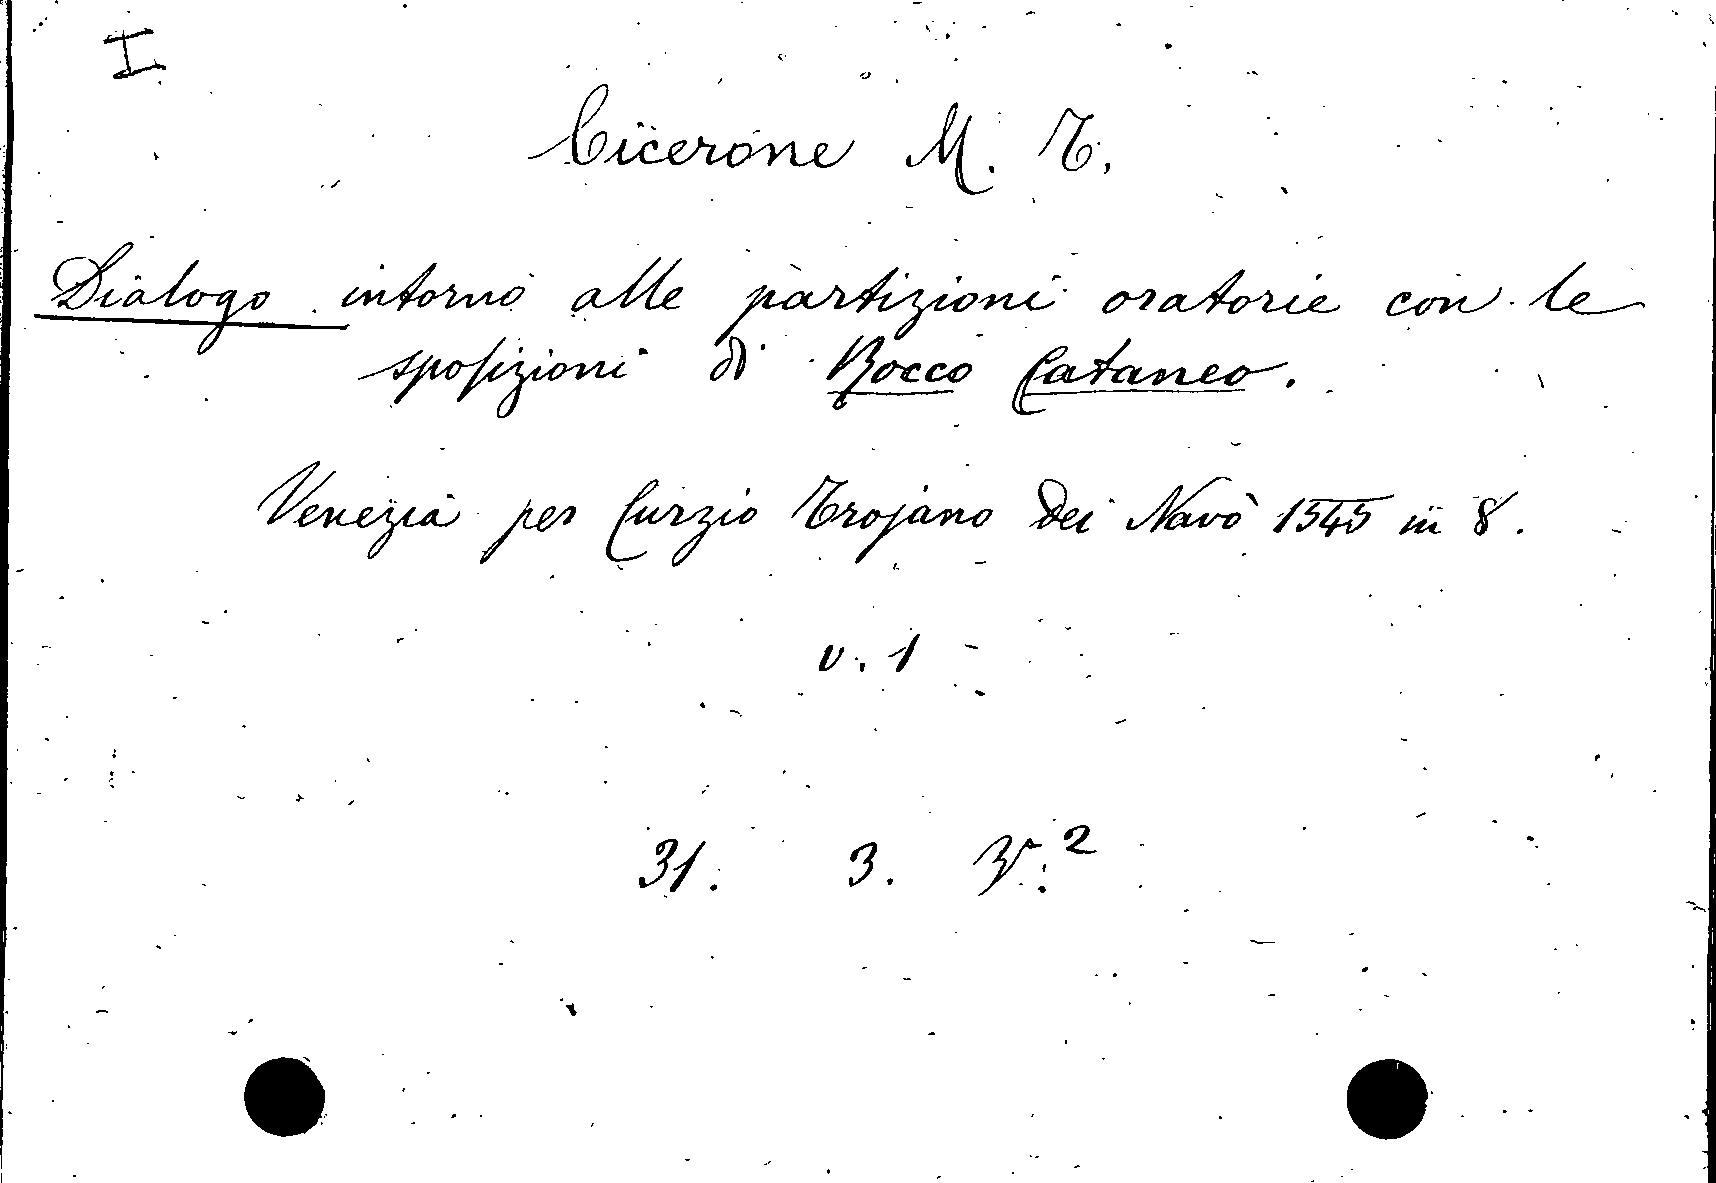 I
Cicerone M. T.
Dialogo intorno alle partizioni oratorie con le
sposizioni di Rocco Cataneo.
Venezia per Curzio Trojano dei Navò 1545 in 8.
v. 1
31. 3. 2